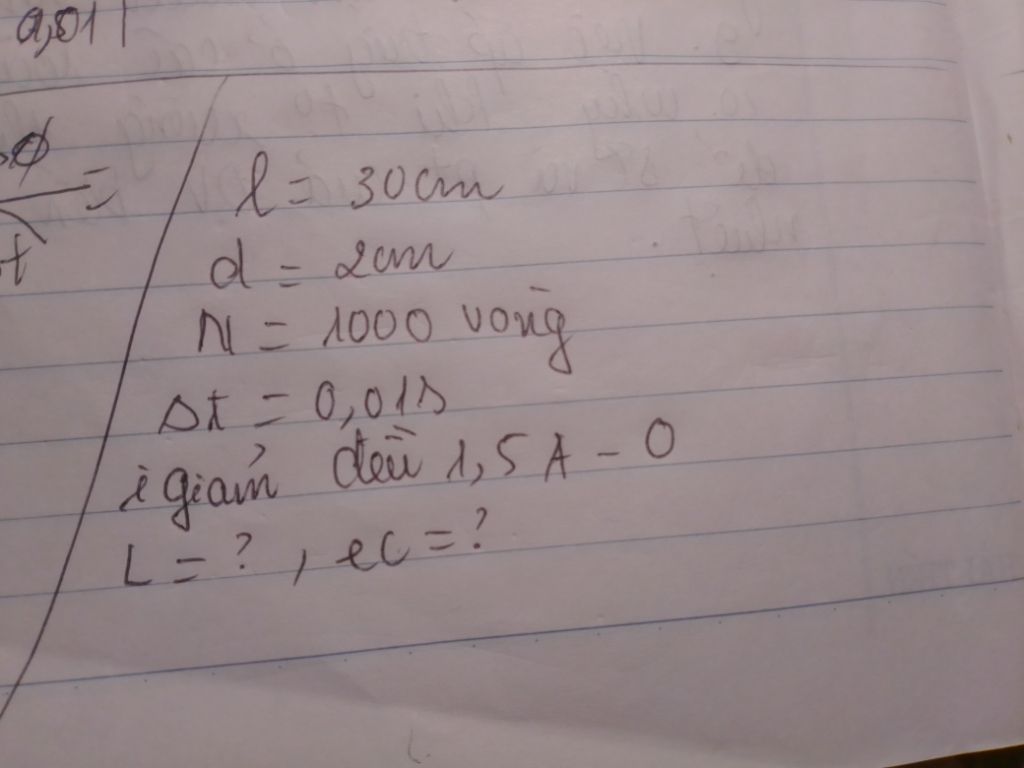 0,01
Δφ =
Δt
l = 30cm
d = 2cm
N = 1000 vòng
Δt = 0,01s
i giảm đều 1,5A - 0
L = ? , ec = ?